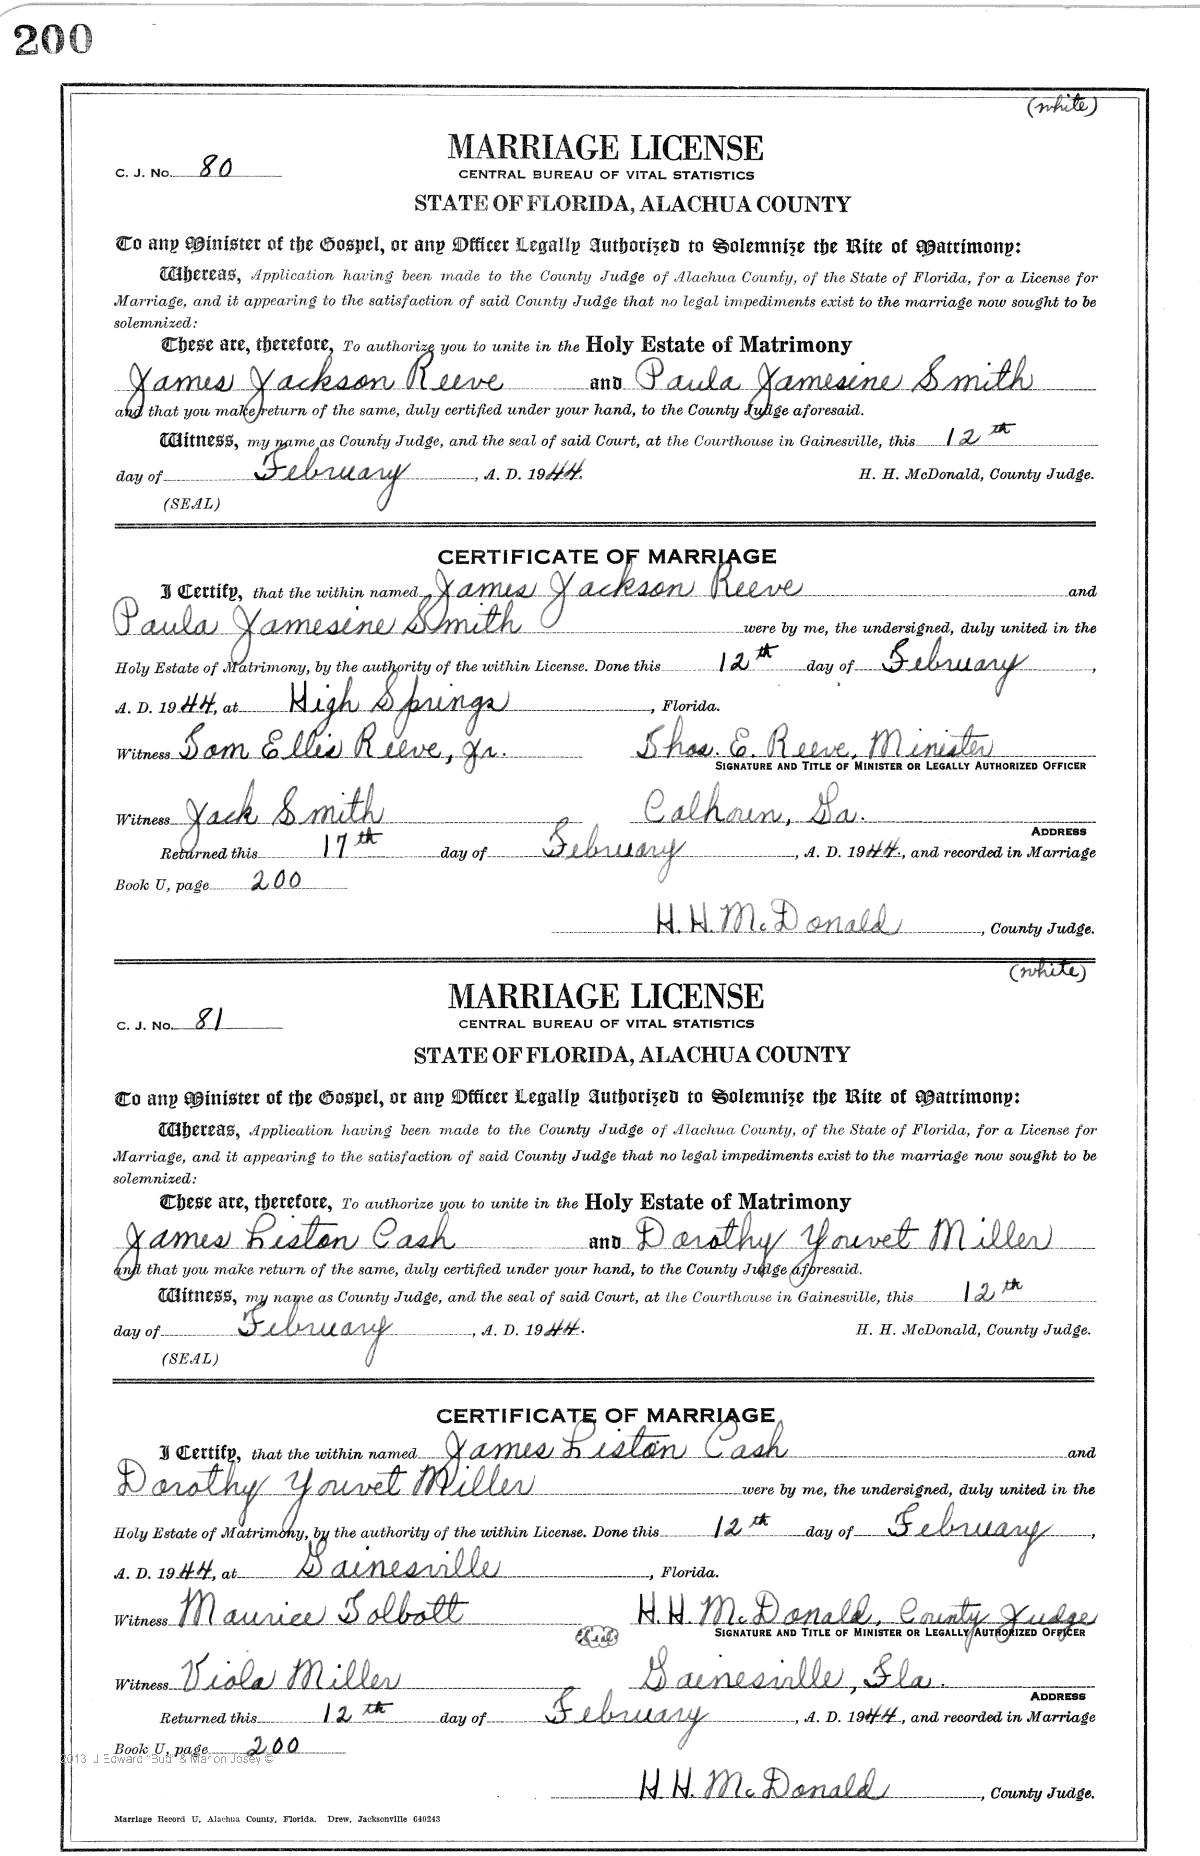 200
(white)
MARRIAGE LICENSE
C. J. No. 80
CENTRAL BUREAU OF VITAL STATISTICS
STATE OF FLORIDA, ALACHUA COUNTY
To any Minister of the Gospel, or any Officer Legally Authorized to Solemnize the Rite of Matrimony:
Whereas, Application having been made to the County Judge of Alachua County, of the State of Florida, for a License for
Marriage, and it appearing to the satisfaction of said County Judge that no legal impediments exist to the marriage now sought to be
solemnized:
These are, therefore, To authorize you to unite in the Holy Estate of Matrimony
James Jackson Reeve and Paula Jamesine Smith
and that you make return of the same, duly certified under your hand, to the County Judge aforesaid.
Witness, my name as County Judge, and the seal of said Court, at the Courthouse in Gainesville, this 12th
day of February, A. D. 1944. H. H. McDonald, County Judge.
(SEAL)
CERTIFICATE OF MARRIAGE
I Certify, that the within named James Jackson Reeve and
Paula Jamesine Smith were by me, the undersigned, duly united in the
Holy Estate of Matrimony, by the authority of the within License. Done this 12th day of February,
A. D. 1944, at High Springs, Florida.
Witness Tom Ellis Reeve, Jr. Thos. E. Reeve, Minister
SIGNATURE AND TITLE OF MINISTER OR LEGALLY AUTHORIZED OFFICER
Witness Jack Smith Calhoun, Ga.
ADDRESS
Returned this 17th day of February, A. D. 1944, and recorded in Marriage
Book U, page 200
H. H. McDonald, County Judge.
(white)
MARRIAGE LICENSE
C. J. No. 81
CENTRAL BUREAU OF VITAL STATISTICS
STATE OF FLORIDA, ALACHUA COUNTY
To any Minister of the Gospel, or any Officer Legally Authorized to Solemnize the Rite of Matrimony:
Whereas, Application having been made to the County Judge of Alachua County, of the State of Florida, for a License for
Marriage, and it appearing to the satisfaction of said County Judge that no legal impediments exist to the marriage now sought to be
solemnized:
These are, therefore, To authorize you to unite in the Holy Estate of Matrimony
James Liston Cash and Dorothy Youvet Miller
and that you make return of the same, duly certified under your hand, to the County Judge aforesaid.
Witness, my name as County Judge, and the seal of said Court, at the Courthouse in Gainesville, this 12th
day of February, A. D. 1944. H. H. McDonald, County Judge.
(SEAL)
CERTIFICATE OF MARRIAGE
I Certify, that the within named James Liston Cash and
Dorothy Youvet Miller were by me, the undersigned, duly united in the
Holy Estate of Matrimony, by the authority of the within License. Done this 12th day of February,
A. D. 1944, at Gainesville, Florida.
Witness Maurice Tolbott H. H. McDonald, County Judge
(Seal) SIGNATURE AND TITLE OF MINISTER OR LEGALLY AUTHORIZED OFFICER
Witness Viola Miller Gainesville, Fla.
ADDRESS
Returned this 12th day of February, A. D. 1944, and recorded in Marriage
Book U, page 200
2013 J Edward "Bud" & Marion Josey ©
H. H. McDonald, County Judge.
Marriage Record U, Alachua County, Florida. Drew, Jacksonville 640243